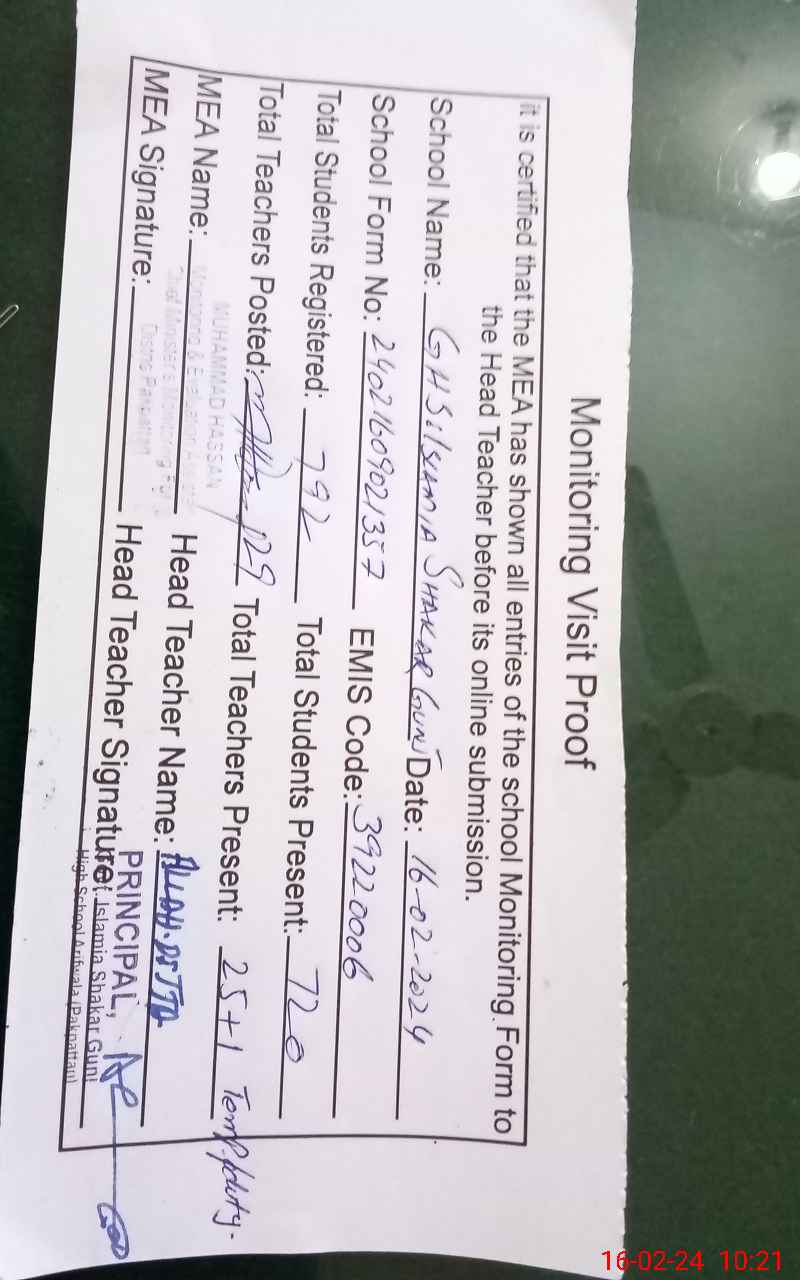 Monitoring Visit Proof
it is certified that the MEA has shown all entries of the school Monitoring Form to
the Head Teacher before its online submission.
School Name: GHS Islamia Shakar Gunj Date: 16-02-2024
School Form No: 24021609021357 EMIS Code: 39220006
Total Students Registered: 792 Total Students Present: 720
Total Teachers Posted: 29 Total Teachers Present: 25+1 Temp. duty.
MUHAMMAD HASSAN
MEA Name: Head Teacher Name: ALLAH DITTA
Monitoring & Evaluation
Chief Minister's Monitoring
District Pakpattan
MEA Signature: Head Teacher Signature:
PRINCIPAL,
Govt. Islamia Shakar Gunj
High School Arifwala (Pakpattan)
16-02-24 10:21